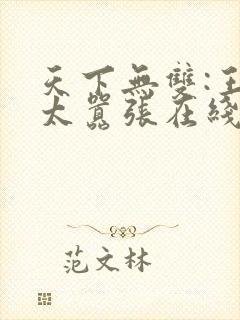 天下無雙:王
太囂張在綫
范文林